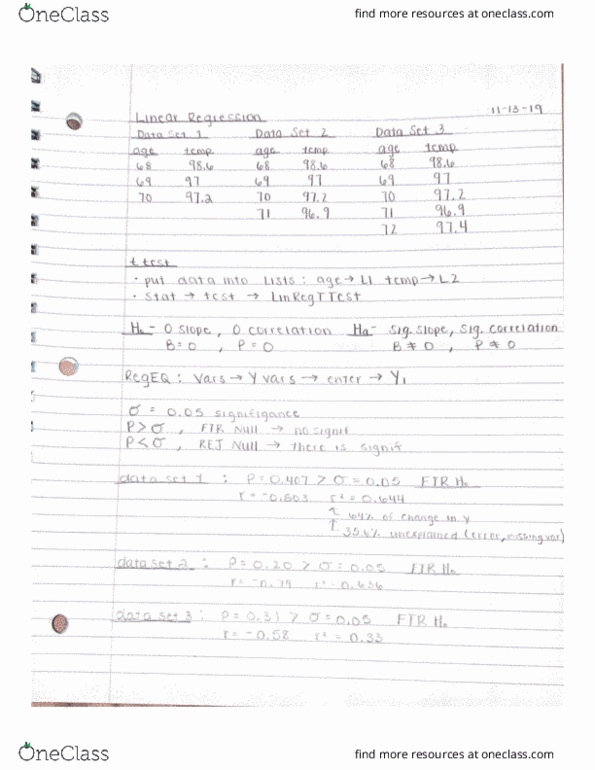 OneClass find more resources at oneclass.com
11-13-19
Linear Regression
Data Set 1 Data Set 2 Data Set 3
age temp age temp age temp
68 98.6 68 98.6 68 98.6
69 97 69 97 69 97
70 97.2 70 97.2 70 97.2
71 96.9 71 96.9
72 97.4
t test
• put data into Lists: age → L1 temp → L2
• Stat → test → LinRegTTest
H₀ - 0 slope, 0 correlation Ha - sig. slope, sig. correlation
B = 0, P = 0 B ≠ 0, P ≠ 0
RegEQ: Vars → Y vars → enter → Y₁
σ = 0.05 significance
P > σ, FTR Null → no signif
P < σ, REJ Null → there is signif
data set 1: P = 0.407 > σ = 0.05 FTR H₀
r = -0.803 r² = 0.644
↑ 64% of change in Y
↑ 35.6% unexplained (error, missing var)
data set 2: P = 0.20 > σ = 0.05 FTR H₀
r = -0.79 r² = 0.636
data set 3: P = 0.31 > σ = 0.05 FTR H₀
r = -0.58 r² = 0.33
OneClass find more resources at oneclass.com